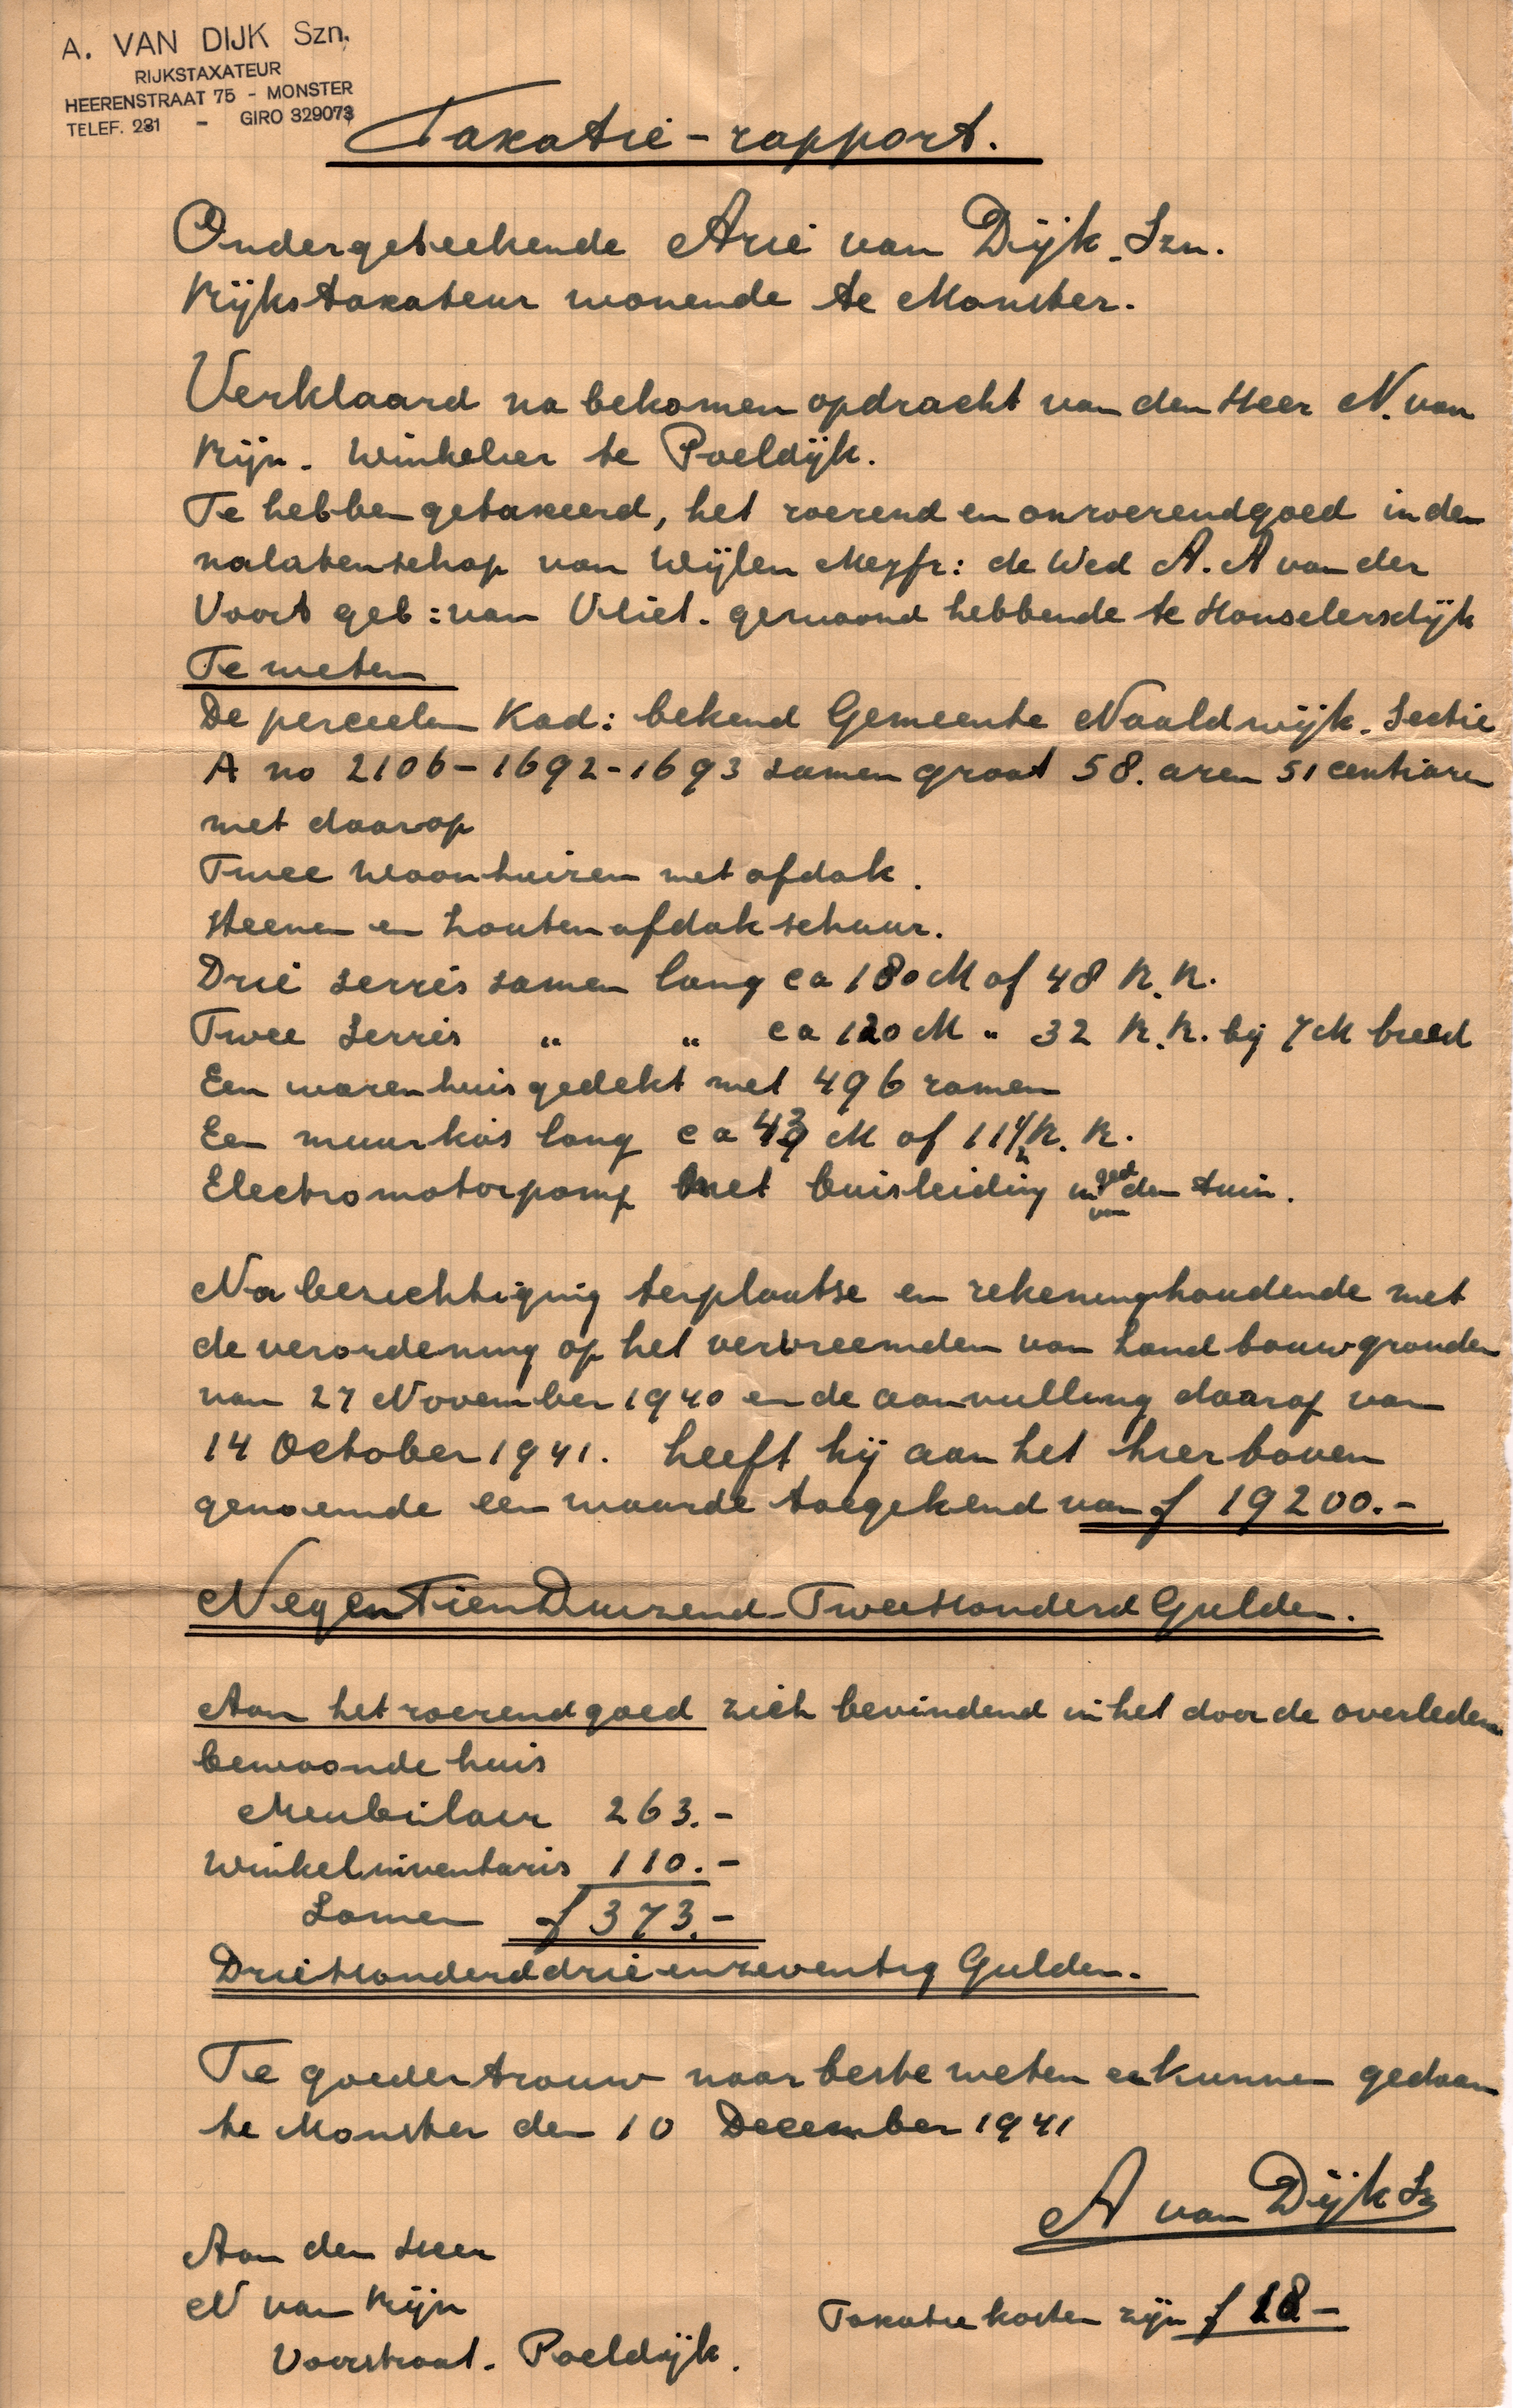 A. VAN DIJK Szn.
RIJKSTAXATEUR
HEERENSTRAAT 75 - MONSTER
TELEF. 231 - GIRO 329073
Taxatie-rapport.
Ondergeteekende Arie van Dijk. Szn.
Rijkstaxateur wonende te Monster.
Verklaard na bekomen opdracht van den Heer N. van
Rijn. Winkelier te Poeldijk.
Te hebben getaxeerd, het roerend en onroerendgoed in den
nalatenschap van Wijlen Mejfr: de Wed A. A van der
Voort geb: van Vliet. gewoond hebbende te Honselersdijk
Te weten
De perceelen Kad: bekend Gemeente Naaldwijk. Sectie
A no 2106-1692-1693 samen groot 58. aren 51 centiaren
met daarop
Twee woonhuizen met afdak.
Steenen en houten afdakschuur.
Drie serres samen lang ca 180 M of 48 R.R.
Twee Serres " " ca 120 M " 32 R.R. bij 7 M breed
Een warenhuis gedekt met 496 ramen
Een muurkas lang ca 43 M of 11½ R. R.
Electromotorpomp met buisleiding in ged van den tuin.
Na bezichtiging terplaatse en rekeninghoudende met
de verordening op het vervreemden van Landbouwgronden
van 27 November 1940 en de aanvulling daarop van
14 October 1941. heeft hij aan het hierboven
genoemde een waarde toegekend van f 19200.-
NegenTienDuizend-TweeHonderd Gulden.
Aan het roerendgoed zich bevindend in het door de overleden
bewoonde huis
Meubilair 263.-
Winkelinventaris 110.-
Samen f 373.-
DrieHonderddrieenzeventig Gulden.
Te goeder trouw naar beste weten en kunnen gedaan
te Monster den 10 December 1941
A van Dijk Sz
Aan den Heer
N van Rijn
Voorstraat. Poeldijk.
Taxatie kosten zijn f 18.-